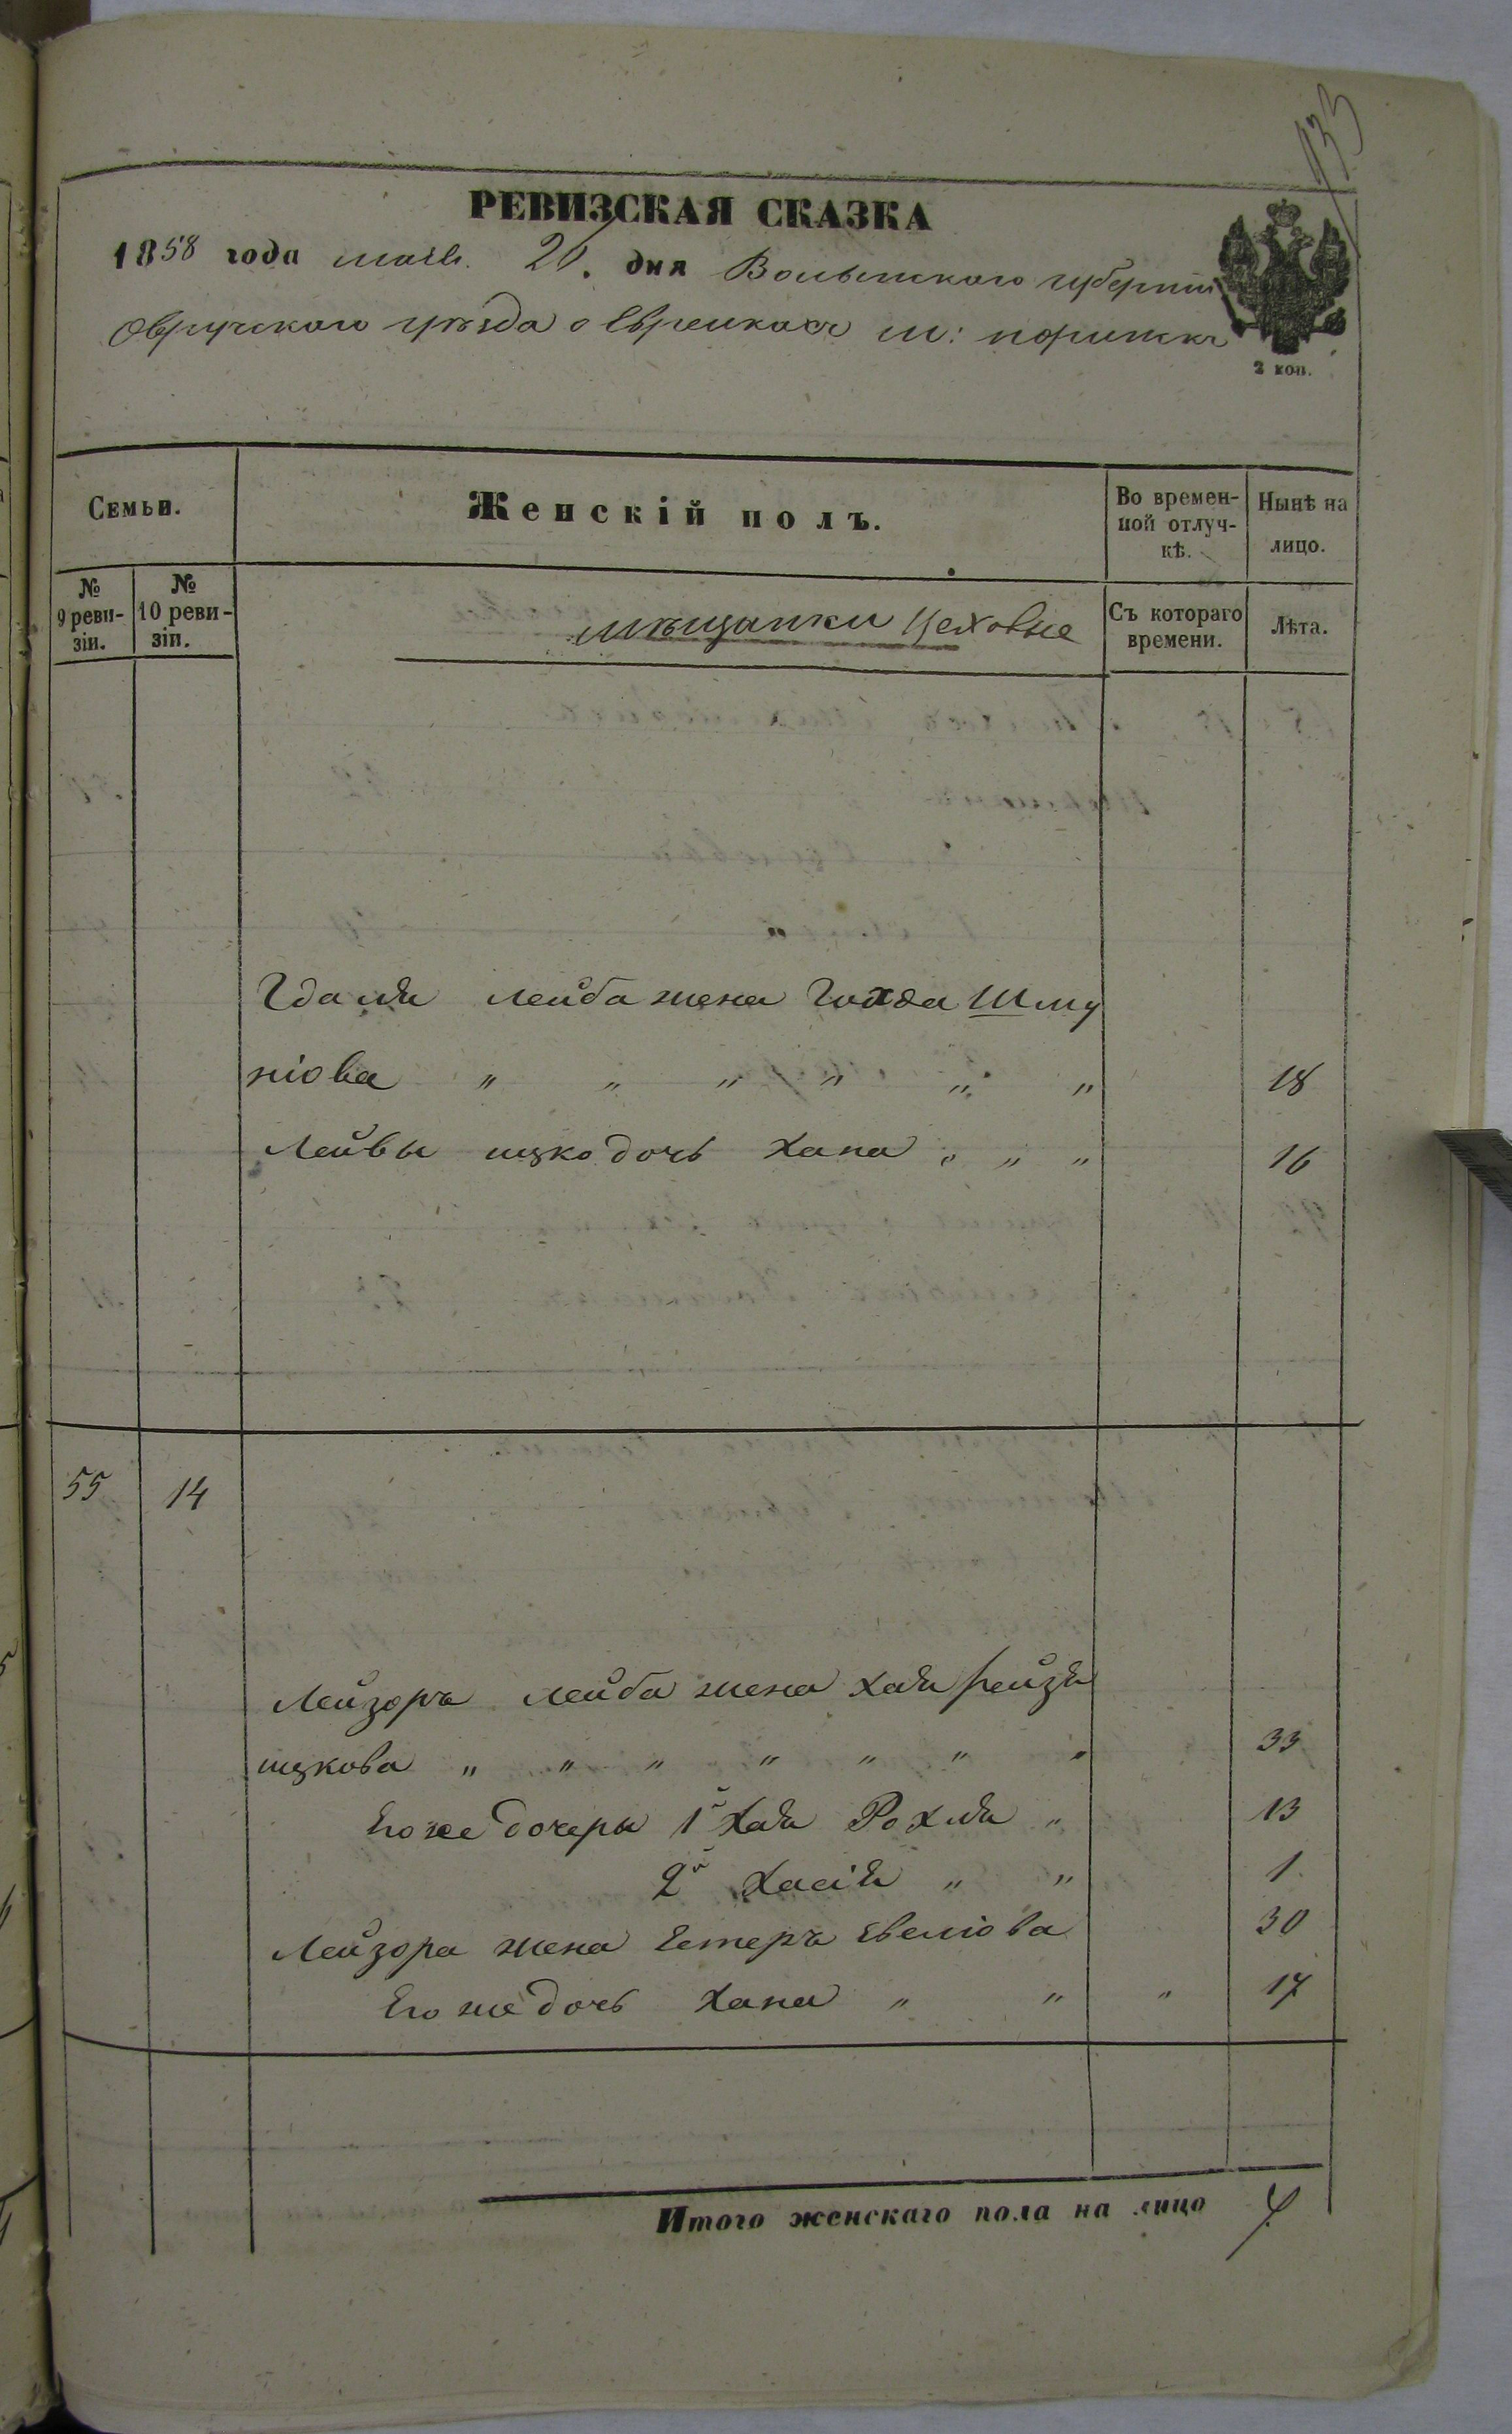 133
РЕВИЗСКАЯ СКАЗКА
1858 года маія 20. дня Волынского губерніи
Овручского уѣзда о Евреикахъ м:
2 коп.
Семьи.
Женскій полъ.
Во времен-
ной отлуч-
кѣ.
Нынѣ на
лицо.
№
9 реви-
зіи.
№
10 реви-
зіи.
мѣщанки цеховые
Съ котораго
времени.
Лѣта.
Гдаля лейба жена Шму
ліова " " " " " " 18
Лейвы ицко дочь Хана " " " 16
55 14
Лейзоръ лейба жена хая рейзя
ицкова " " " " " " " 33
Его же дочеры 1я хая Рохля " 13
2я Хасія " " 1
Лейзора жена Естеръ Евеліова 30
Его же дочь Хана " " " 17
Итого женскаго пола на лицо 7